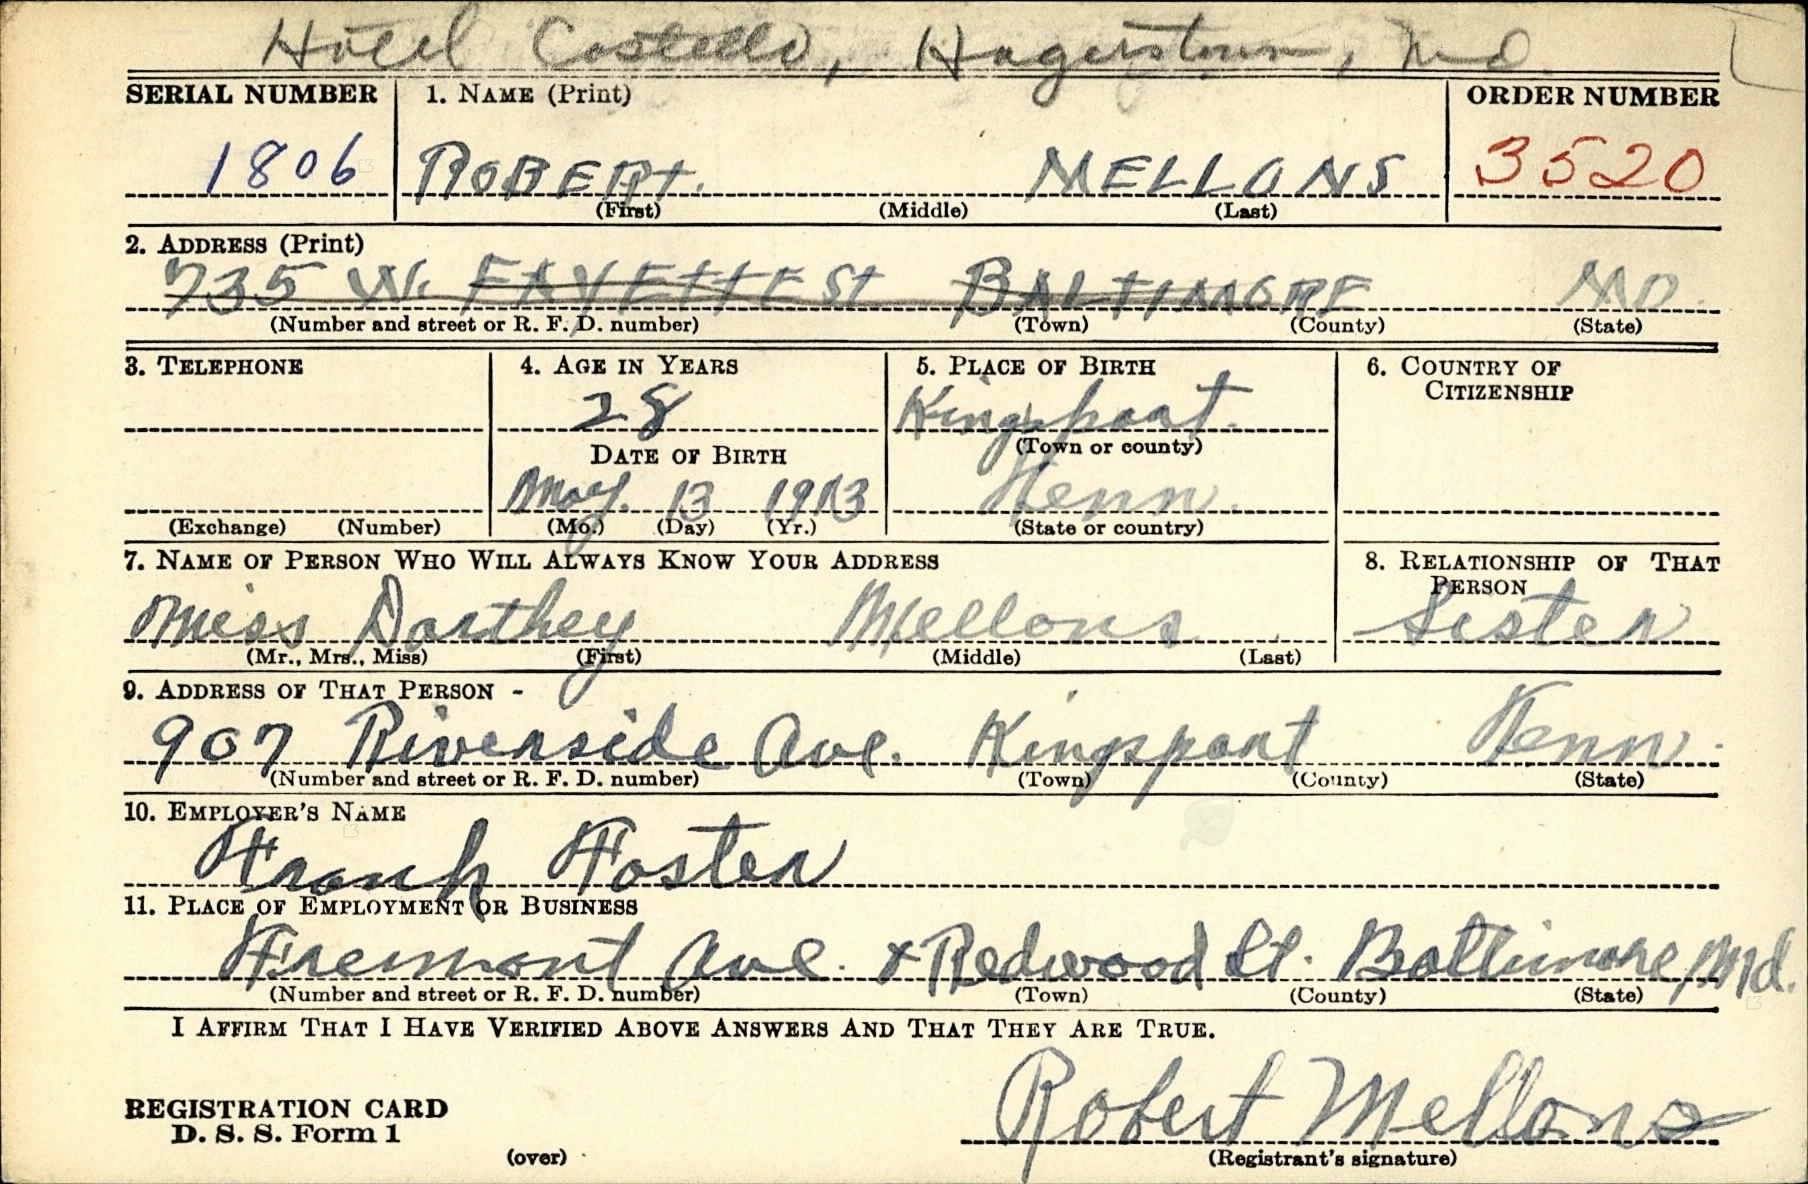 Hotel Costello, Hagerstown, Md.
SERIAL NUMBER 1. NAME (Print) ORDER NUMBER
1806 ROBERT. MELLONS 3520
(First) (Middle) (Last)
2. ADDRESS (Print)
735 W. FAYETTE St BALTIMORE MD.
(Number and street or R. F. D. number) (Town) (County) (State)
3. TELEPHONE 4. AGE IN YEARS 5. PLACE OF BIRTH 6. COUNTRY OF
CITIZENSHIP
28 Kingsport.
DATE OF BIRTH (Town or county)
May. 13 1913 Tenn.
(Exchange) (Number) (Mo.) (Day) (Yr.) (State or country)
7. NAME OF PERSON WHO WILL ALWAYS KNOW YOUR ADDRESS 8. RELATIONSHIP OF THAT
PERSON
Miss Dorthey Mellons Sister
(Mr., Mrs., Miss) (First) (Middle) (Last)
9. ADDRESS OF THAT PERSON -
907 Riverside Ave. Kingsport Tenn.
(Number and street or R. F. D. number) (Town) (County) (State)
10. EMPLOYER'S NAME
Frank Foster
11. PLACE OF EMPLOYMENT OR BUSINESS
Freemont Ave. + Redwood St. Baltimore, Md.
(Number and street or R. F. D. number) (Town) (County) (State)
I AFFIRM THAT I HAVE VERIFIED ABOVE ANSWERS AND THAT THEY ARE TRUE.
REGISTRATION CARD
D. S. S. Form 1
Robert Mellons
(over) (Registrant's signature)